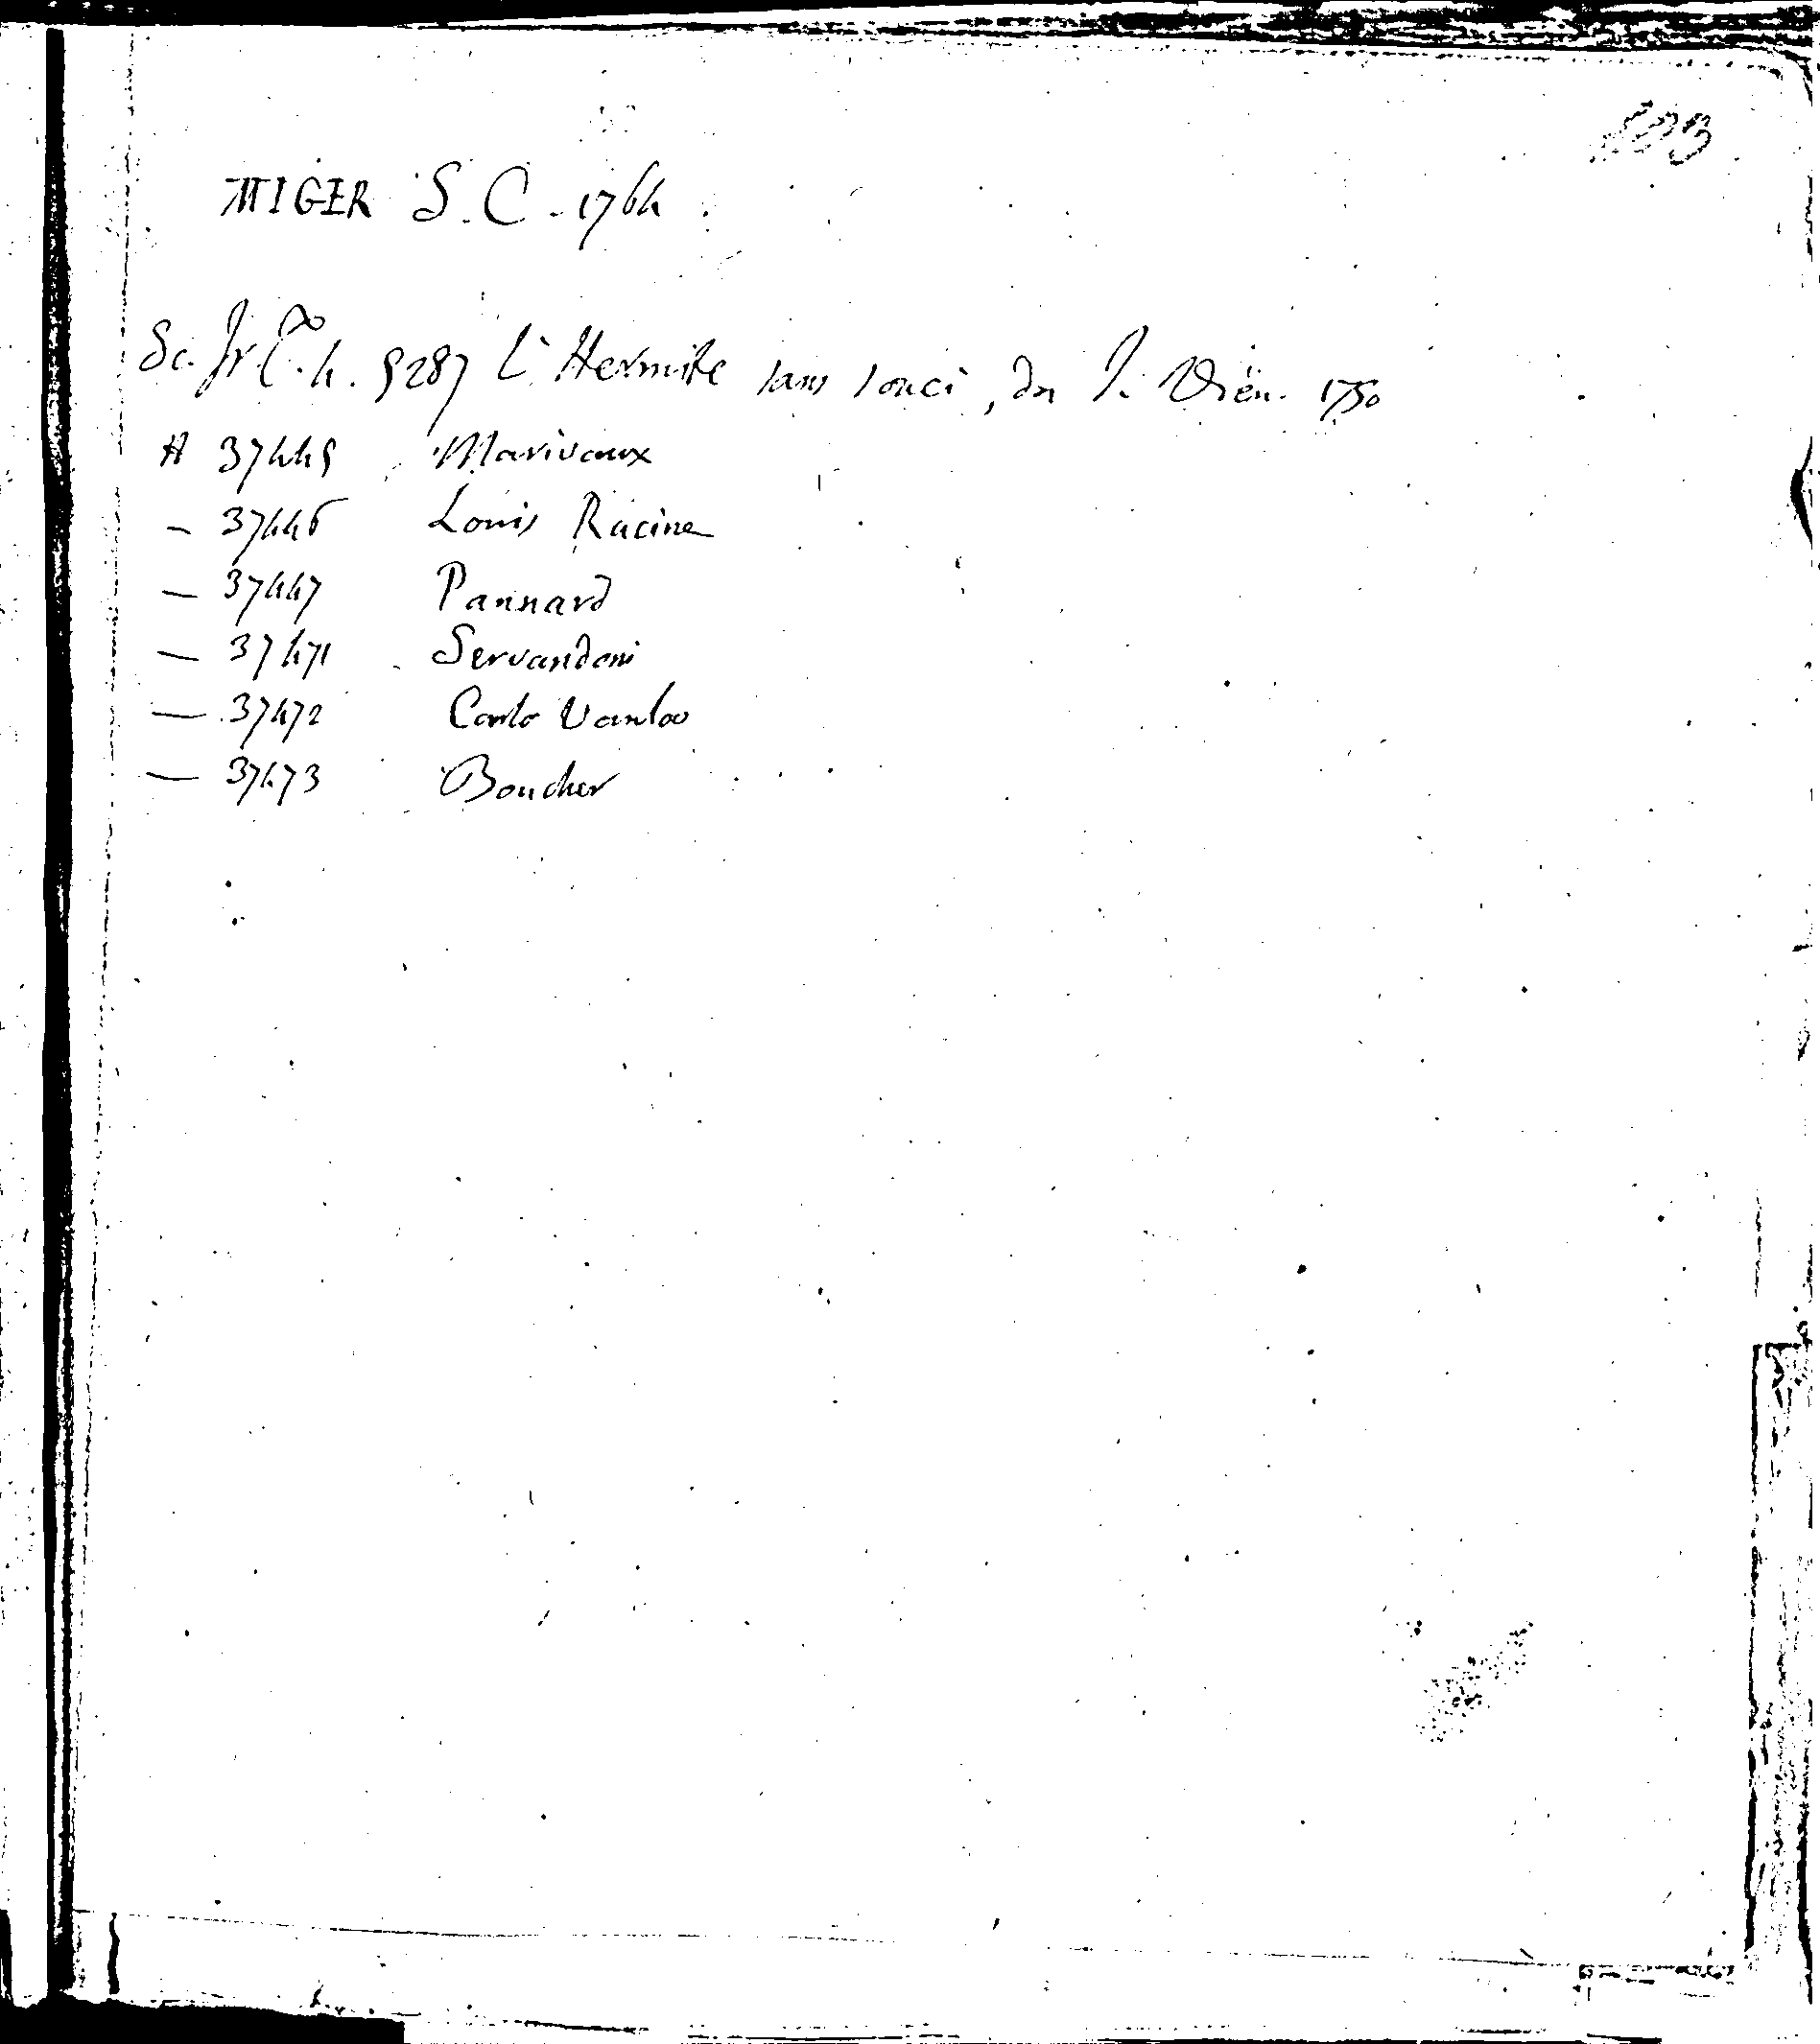 MIGER S. C. 1764
Sc. Fr. 4. 5287 L'Hermite sans souci, du J. Vien. 1750
A 37445 Marivaux
— 37446 Louis Racine
— 37447 Pannard
— 37471 Servandoni
— 37472 Carlo Vanloo
— 37473 Boucher